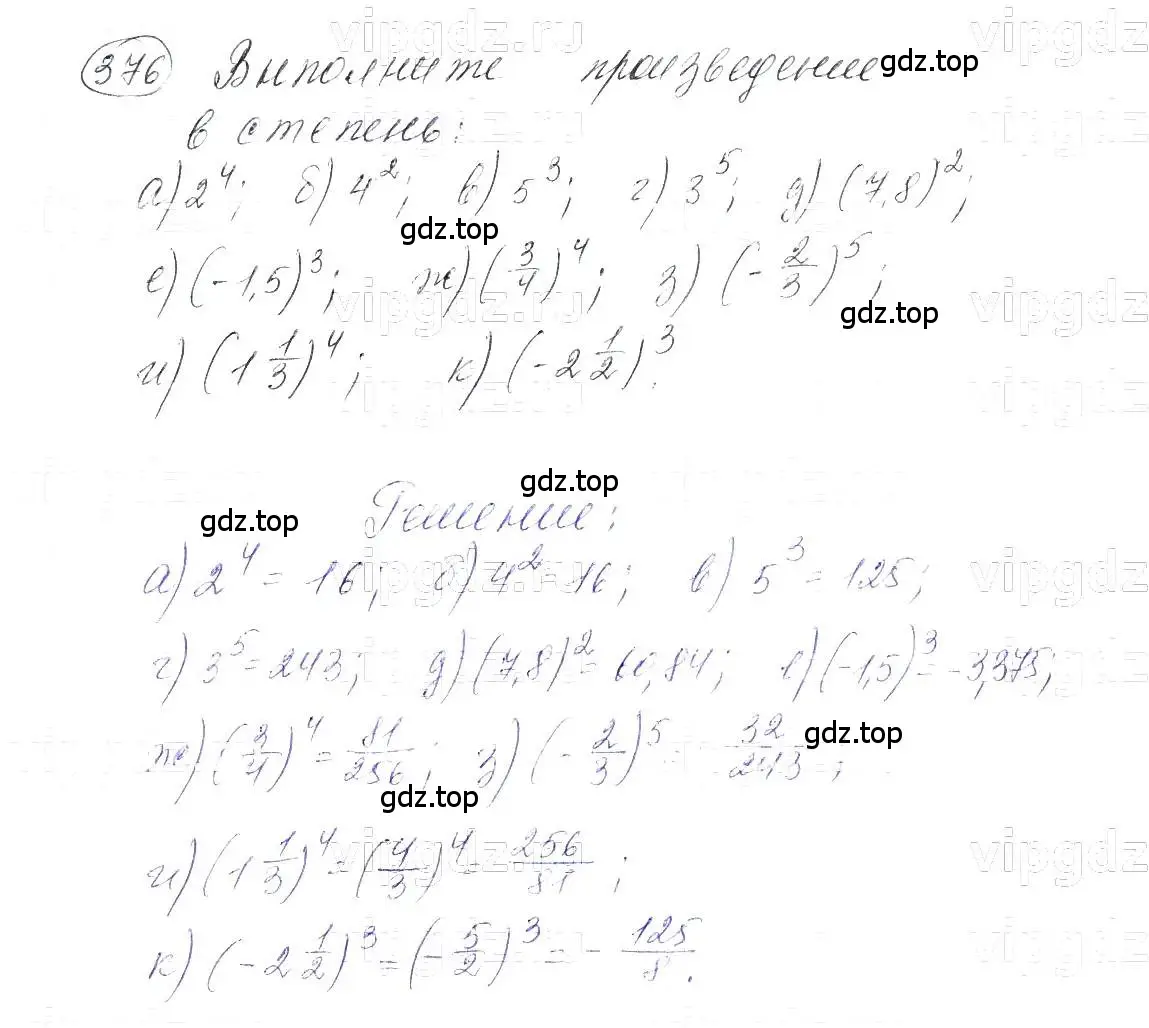 376 Выполните произведение
в степень:
а) 2^4; б) 4^2; в) 5^3; г) 3^5; д) (7,8)^2;
е) (-1,5)^3; ж) (3/4)^4; з) (-2/3)^5;
и) (1 1/3)^4; к) (-2 1/2)^3.
Решение:
а) 2^4 = 16; б) 4^2 = 16; в) 5^3 = 125;
г) 3^5 = 243; д) (7,8)^2 = 60,84; е) (-1,5)^3 = -3,375;
ж) (3/4)^4 = 81/256; з) (-2/3)^5 = -32/243;
и) (1 1/3)^4 = (4/3)^4 = 256/81;
к) (-2 1/2)^3 = (-5/2)^3 = -125/8.
gdz.top
gdz.top
gdz.top
gdz.top
gdz.top
gdz.top
gdz.top
vipgdz.ru
vipgdz
vipgdz.ru
vipgdz
vipgdz.ru
vipgdz
vipgdz.ru
vipgdz